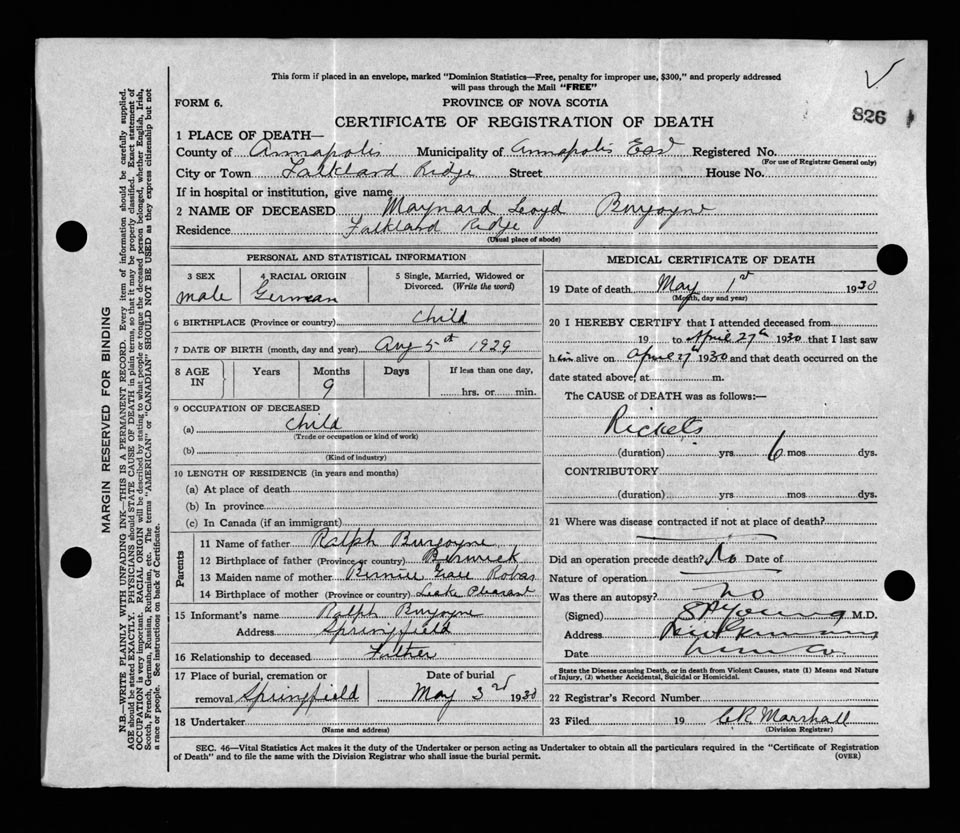 This form if placed in an envelope, marked "Dominion Statistics—Free, penalty for improper use, $300," and properly addressed
will pass through the Mail "FREE"
FORM 6.
PROVINCE OF NOVA SCOTIA
826
CERTIFICATE OF REGISTRATION OF DEATH
1 PLACE OF DEATH—
County of Annapolis Municipality of Annapolis East Registered No.
(For use of Registrar General only)
City or Town Falkland Ridge Street House No.
If in hospital or institution, give name
2 NAME OF DECEASED Maynard Loyd Burgoyne
Residence Falkland Ridge
(Usual place of abode)
PERSONAL AND STATISTICAL INFORMATION
3 SEX 4 RACIAL ORIGIN 5 Single, Married, Widowed or
Divorced. (Write the word)
male German
6 BIRTHPLACE (Province or country) child
7 DATE OF BIRTH (month, day and year) Aug 5th 1929
8 AGE IN Years Months Days If less than one day,
9 hrs. or min.
9 OCCUPATION OF DECEASED
(a) child
(Trade or occupation or kind of work)
(b)
(Kind of industry)
10 LENGTH OF RESIDENCE (in years and months)
(a) At place of death
(b) In province
(c) In Canada (if an immigrant)
Parents
11 Name of father Ralph Burgoyne
12 Birthplace of father (Province or country) Berwick
13 Maiden name of mother
14 Birthplace of mother (Province or country) Lake Pleasant
15 Informant's name Ralph Burgoyne
Address Springfield
16 Relationship to deceased Father
17 Place of burial, cremation or Date of burial
removal Springfield May 3rd 1930
18 Undertaker
(Name and address)
MEDICAL CERTIFICATE OF DEATH
19 Date of death May 1st 1930
(Month, day and year)
20 I HEREBY CERTIFY that I attended deceased from
19 to April 27th 1930 that I last saw
him alive on April 27th 1930 and that death occurred on the
date stated above, at m.
The CAUSE of DEATH was as follows:—
Rickets
(duration) yrs 6 mos. dys.
CONTRIBUTORY
(duration) yrs mos dys.
21 Where was disease contracted if not at place of death?
Did an operation precede death? No Date of
Nature of operation
Was there an autopsy? no
(Signed) Young M.D.
Address
Date
State the Disease causing Death, or in death from Violent Causes, state (1) Means and Nature
of Injury, (2) whether Accidental, Suicidal or Homicidal.
22 Registrar's Record Number
23 Filed 19 C R Marshall
(Division Registrar)
SEC. 46—Vital Statistics Act makes it the duty of the Undertaker or person acting as Undertaker to obtain all the particulars required in the "Certificate of Registration
of Death" and to file the same with the Division Registrar who shall issue the burial permit.
(OVER)
MARGIN RESERVED FOR BINDING
N.B.—WRITE PLAINLY WITH UNFADING INK—THIS IS A PERMANENT RECORD. Every item of information should be carefully supplied.
AGE should be stated EXACTLY. PHYSICIANS should STATE CAUSE OF DEATH in plain terms, so that it may be properly classified. Exact statement of
OCCUPATION is very important. RACIAL ORIGIN will be described by stating to what people or tongue the deceased person belonged, whether English, Irish,
Scotch, French, German, Russian, Ruthenian, etc. The terms "AMERICAN" or "CANADIAN" SHOULD NOT BE USED as they express citizenship but not
a race or people. See instructions on back of Certificate.